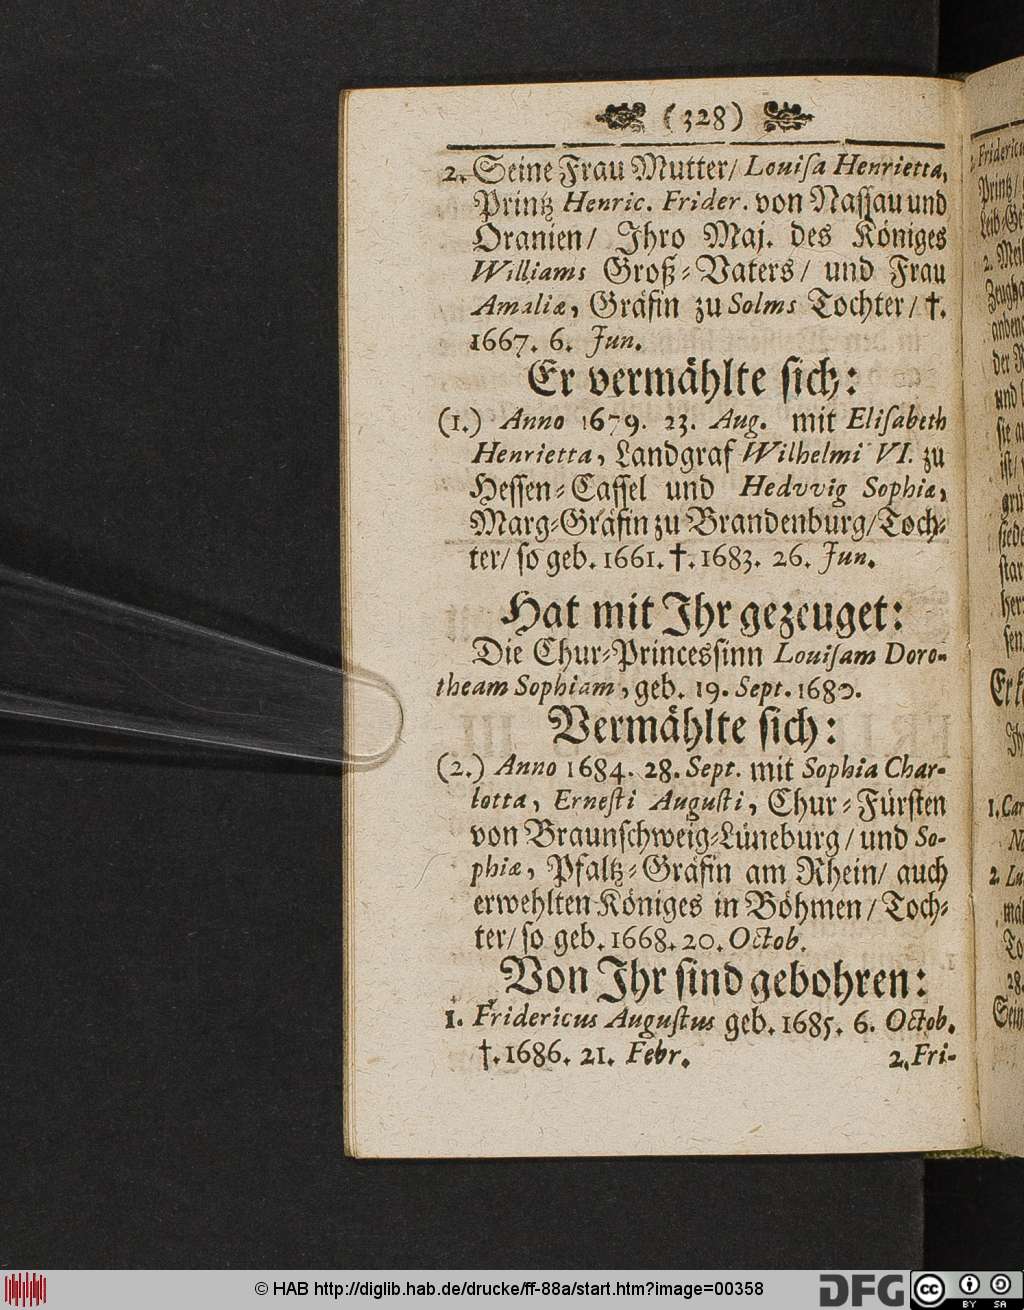 (328)
2. Seine Frau Mutter/ Louiſa Henrietta,
Printz Henric. Frider. von Naſſau und
Oranien/ Ihro Maj. des Königes
Williams Groß-Vaters/ und Frau
Amaliæ, Gräfin zu Solms Tochter/ †.
1667. 6. Jun.
Er vermählte ſich:
(1.) Anno 1679. 23. Aug. mit Eliſabeth
Henrietta, Landgraf Wilhelmi VI. zu
Heſſen-Caſſel und Hedvvig Sophiæ,
Marg-Gräfin zu Brandenburg/ Toch-
ter/ ſo geb. 1661. †. 1683. 26. Jun.
Hat mit Ihr gezeuget:
Die Chur-Princesſinn Louiſam Doro-
theam Sophiam, geb. 19. Sept. 1680.
Vermählte ſich:
(2.) Anno 1684. 28. Sept. mit Sophia Char-
lotta, Erneſti Auguſti, Chur-Fürſten
von Braunſchweig-Lüneburg/ und So-
phiæ, Pfaltz-Gräfin am Rhein/ auch
erwehlten Königes in Böhmen/ Toch-
ter/ ſo geb. 1668. 20. Octob.
Von Ihr ſind gebohren:
1. Fridericus Auguſtus geb. 1685. 6. Octob.
†. 1686. 21. Febr.
2. Fri-
© HAB http://diglib.hab.de/drucke/ff-88a/start.htm?image=00358
DFG
cc
BY SA